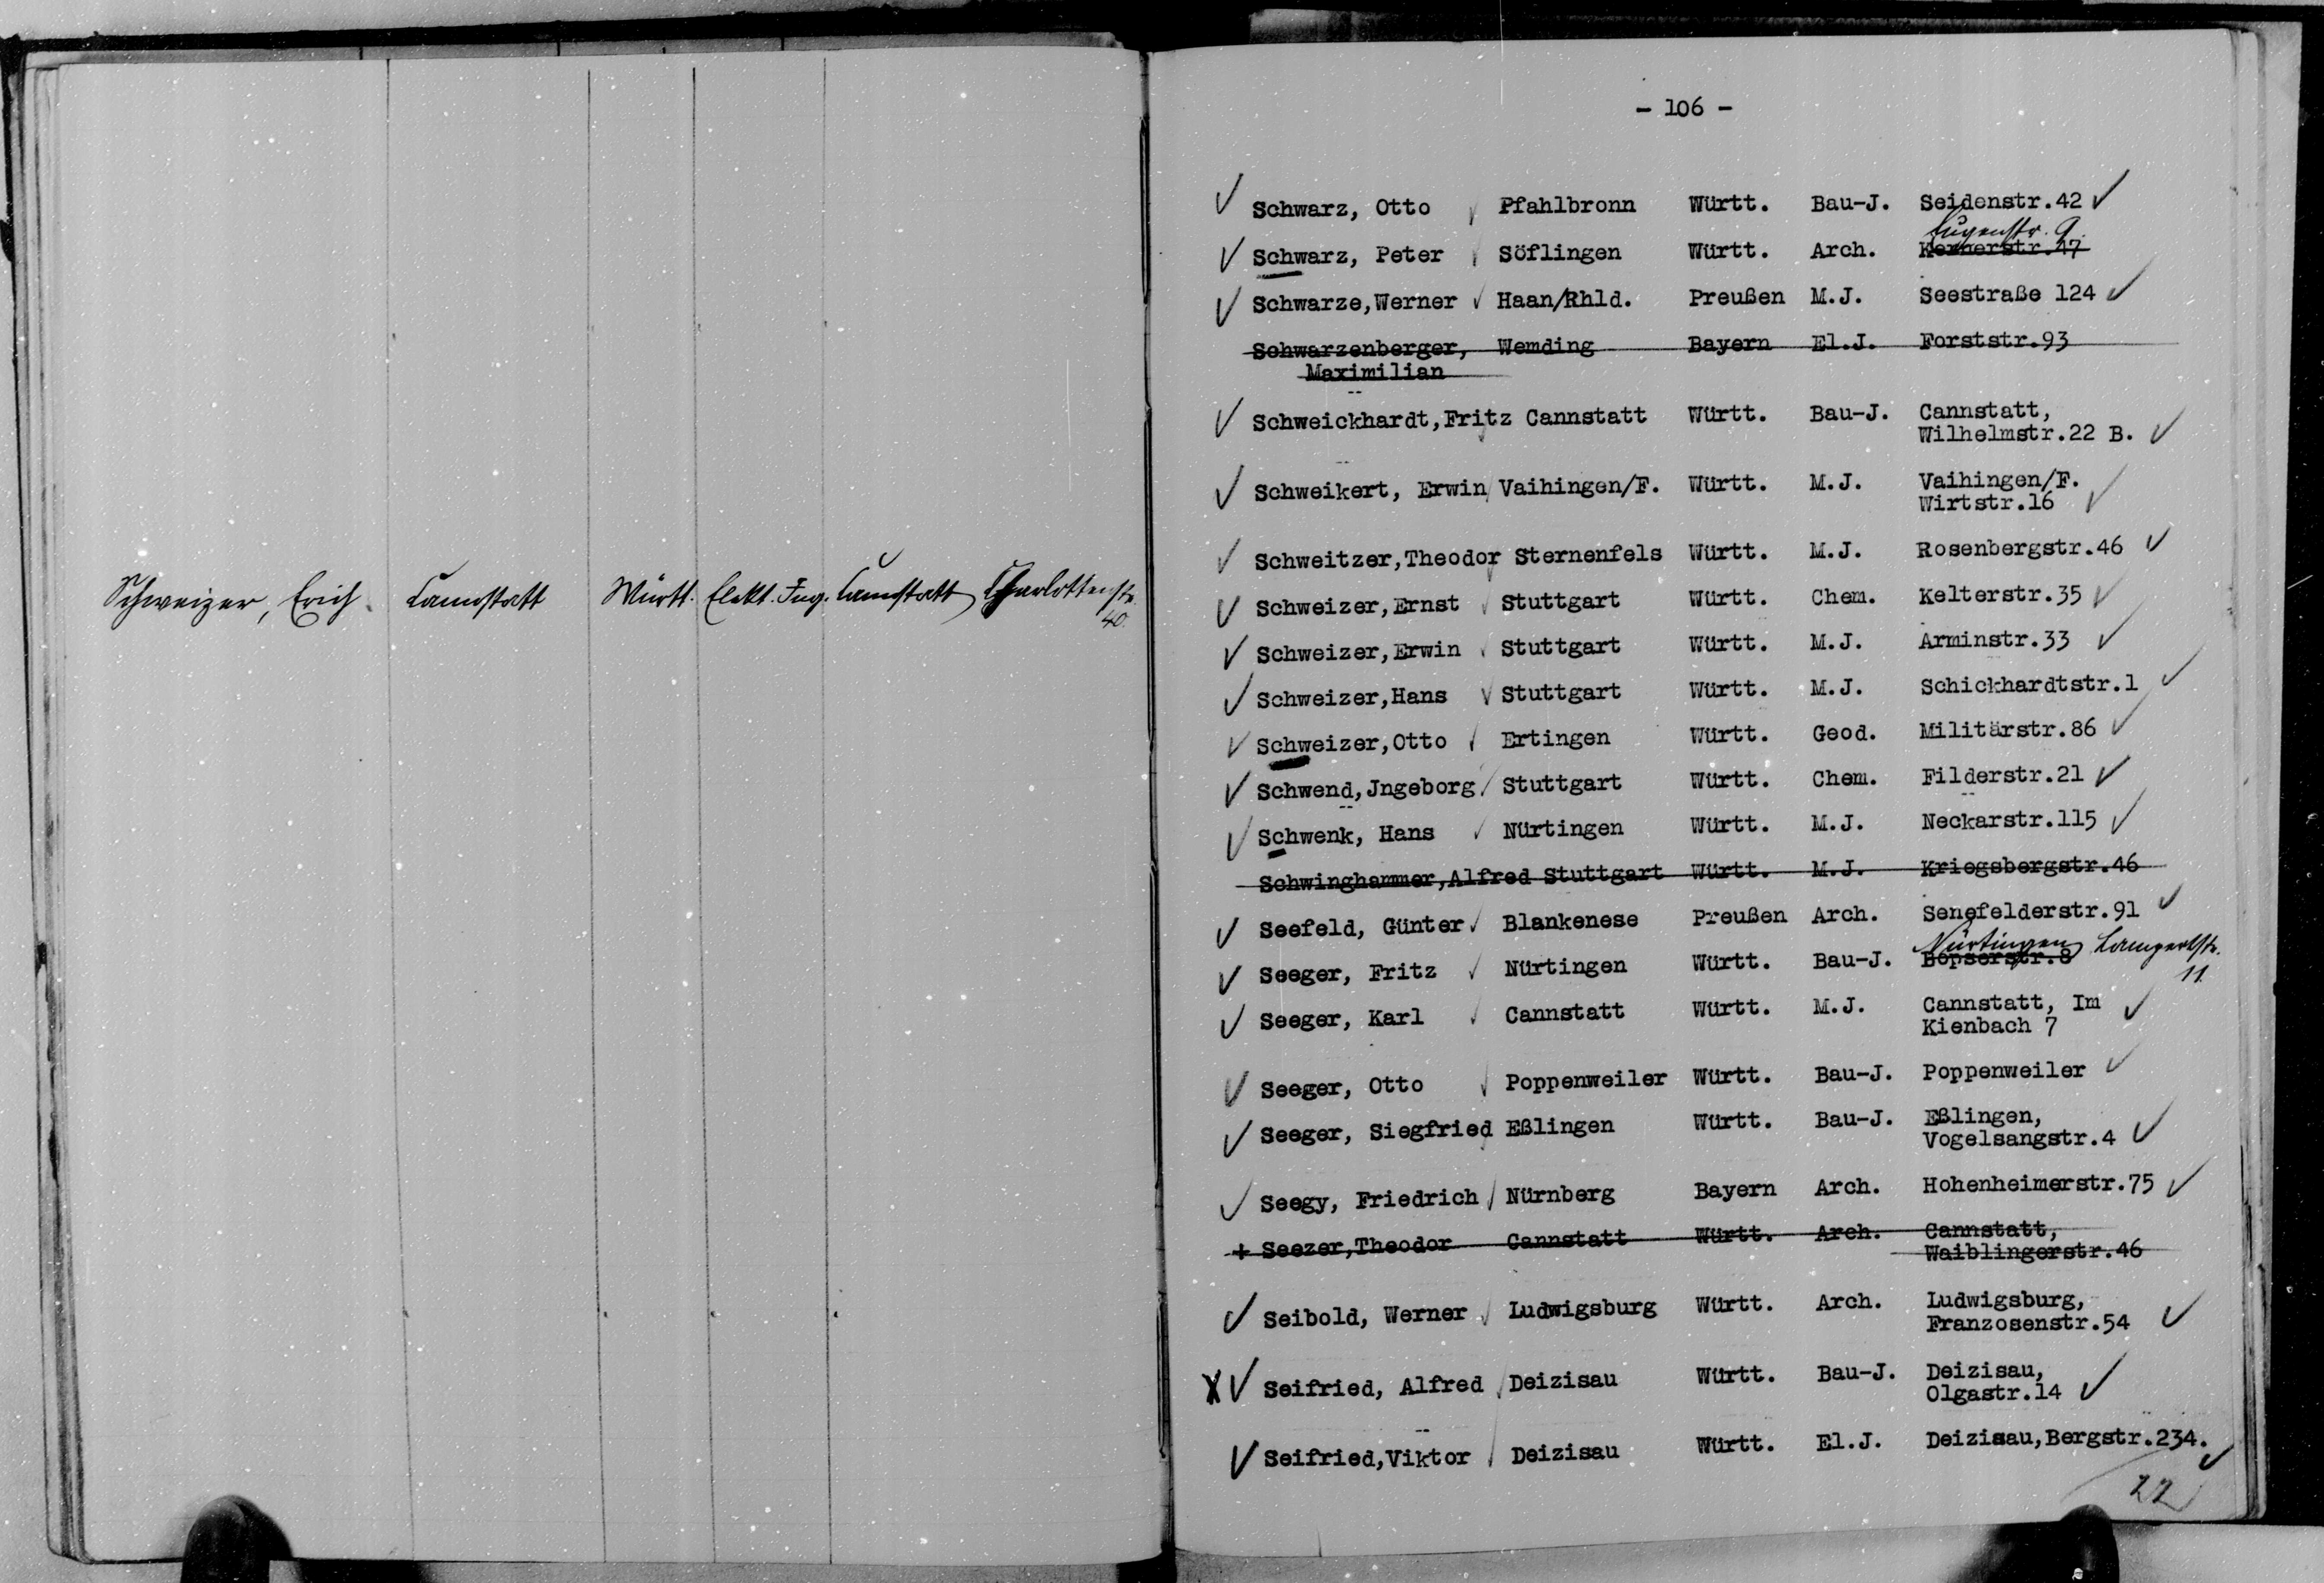 Schweizer, Erich Cannstatt Württ. Elekt. Ing. Cannstatt, Charlottenstr.
40.
- 106 -
Schwarz, Otto Pfahlbronn Württ. Bau-J. Seidenstr.42
Eugenstr. 9.
Schwarz, Peter Söflingen Württ. Arch. Kernerstr.47
Schwarze,Werner Haan/Rhld. Preußen M.J. Seestraße 124
Schwarzenberger, Wemding Bayern El.J. Forststr.93
Maximilian
Schweickhardt,Fritz Cannstatt Württ. Bau-J. Cannstatt,
Wilhelmstr.22 B.
Schweikert, Erwin Vaihingen/F. Württ. M.J. Vaihingen/F.
Wirtstr.16
Schweitzer,Theodor Sternenfels Württ. M.J. Rosenbergstr.46
Schweizer,Ernst Stuttgart Württ. Chem. Kelterstr.35
Schweizer,Erwin Stuttgart Württ. M.J. Arminstr.33
Schweizer,Hans Stuttgart Württ. M.J. Schickhardtstr.1
Schweizer,Otto Ertingen Württ. Geod. Militärstr.86
Schwend,Jngeborg Stuttgart Württ. Chem. Filderstr.21
Schwenk, Hans Nürtingen Württ. M.J. Neckarstr.115
Schwinghammer,Alfred Stuttgart Württ. M.J. Kriegsbergstr.46
Seefeld, Günter Blankenese Preußen Arch. Senefelderstr.91
Nürtingen,
Seeger, Fritz Nürtingen Württ. Bau-J. Bopserstr.8
11.
Seeger, Karl Cannstatt Württ. M.J. Cannstatt, Im
Kienbach 7
Seeger, Otto Poppenweiler Württ. Bau-J. Poppenweiler
Seeger, Siegfried Eßlingen Württ. Bau-J. Eßlingen,
Vogelsangstr.4
Seegy, Friedrich Nürnberg Bayern Arch. Hohenheimerstr.75
+ Seezer,Theodor Cannstatt Württ. Arch. Cannstatt,
Waiblingerstr.46
Seibold, Werner Ludwigsburg Württ. Arch. Ludwigsburg,
Franzosenstr.54
Seifried, Alfred Deizisau Württ. Bau-J. Deizisau,
Olgastr.14
Seifried,Viktor Deizisau Württ. El.J. Deizisau,Bergstr.234.
22